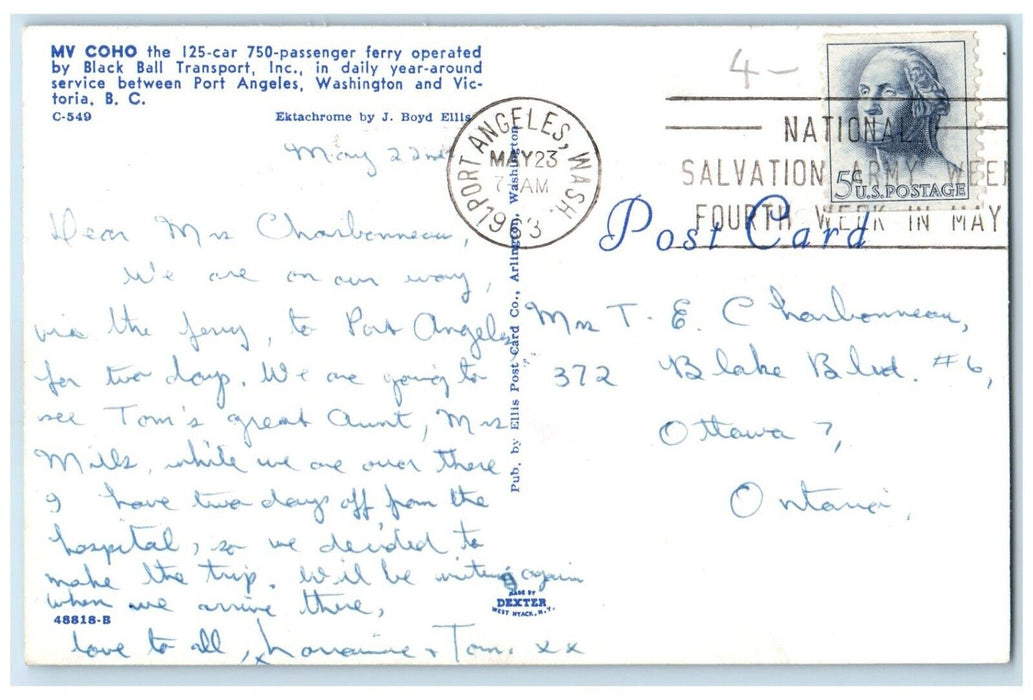 MV COHO the 125-car 750-passenger ferry operated
by Black Ball Transport, Inc., in daily year-around
service between Port Angeles, Washington and Vic-
toria, B. C.
C-549 Ektachrome by J. Boyd Ellis
4 –
PORT ANGELES, WASH.
MAY 23
7 AM
1963
NATIONAL
SALVATION ARMY WEEK
FOURTH WEEK IN MAY
5¢ U.S. POSTAGE
Post Card
May 22nd
Dear Mrs Charbonneau,
We are on our way,
via the ferry, to Port Angeles
for two days. We are going to
see Tom's great Aunt, Mrs
Mills, while we are over there
I have two days off from the
hospital, so we decided to
make the trip. We'll be writing again
when we arrive there,
love to all, Lorraine + Tom. xx
48818-B
Pub. by Ellis Post Card Co., Arlington, Washington
MADE BY
DEXTER
WEST NYACK, N.Y.
Mrs T. E. Charbonneau,
372 Blake Blvd. #6,
Ottawa 7,
Ontario,